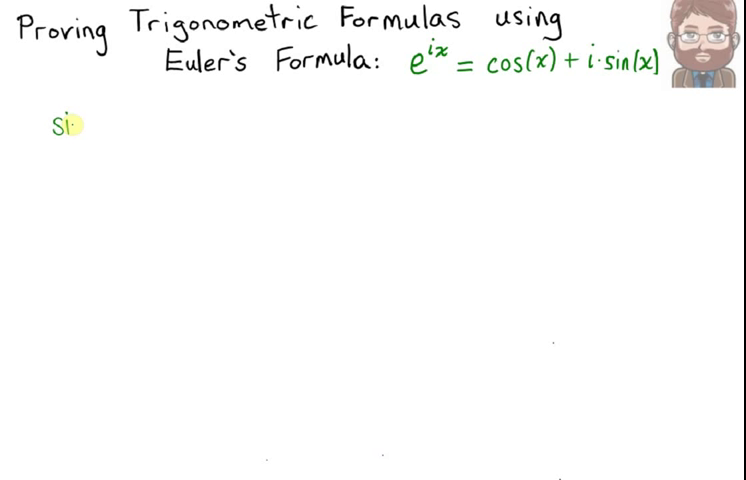 Proving Trigonometric Formulas using
Euler's Formula: e^{ix} = cos(x) + i·sin(x)
si